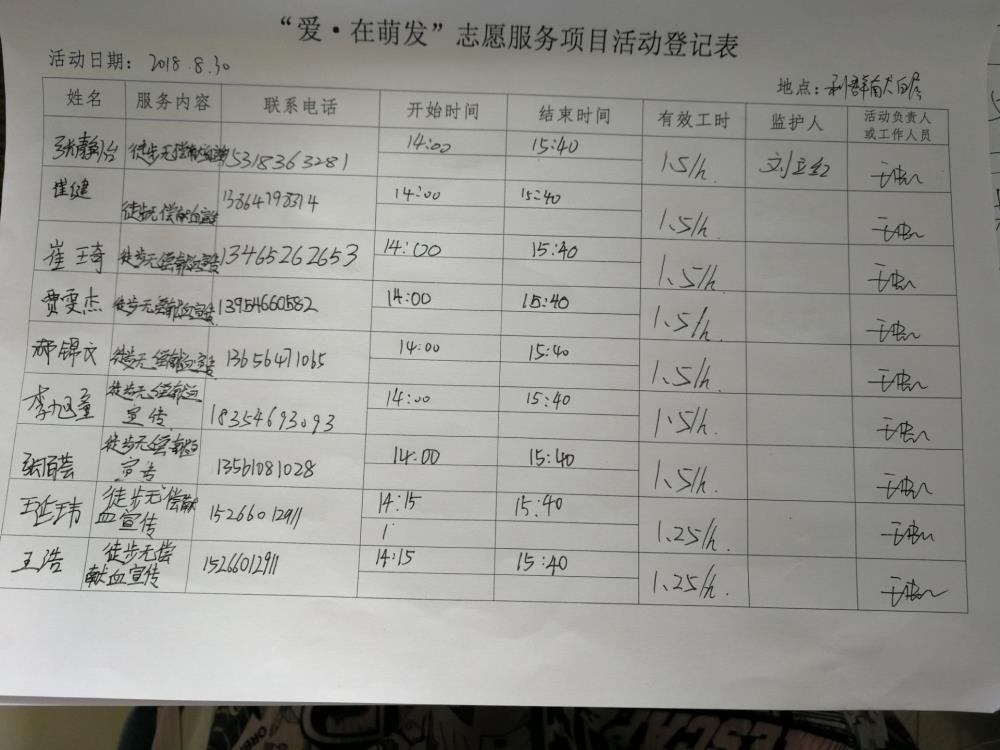 “爱·在萌发”志愿服务项目活动登记表
活动日期： 2018.8.30
地点：利群南大门
姓名 服务内容 联系电话 开始时间 结束时间 有效工时 监护人 活动负责人或工作人员
张静怡 徒步无偿献血宣传 15318363281 14:00 15:40 1.5/h. 刘立红
崔健 徒步无偿献血宣传 13864798314 14:00 15:40 1.5/h.
崔王奇 徒步无偿献血宣传 13465262653 14:00 15:40 1.5/h.
贾雯杰 徒步无偿献血宣传 13954660582 14:00 15:40 1.5/h.
郝锦文 徒步无偿献血宣传 13656471065 14:00 15:40 1.5/h.
李旭童 徒步无偿献血宣传 18354693093 14:00 15:40 1.5/h.
张百荟 徒步无偿献血宣传 13561081028 14:00 15:40 1.5/h.
王延玮 徒步无偿献血宣传 15266012911 14:15 15:40 1.25/h.
王浩 徒步无偿献血宣传 15266012911 14:15 15:40 1.25/h.